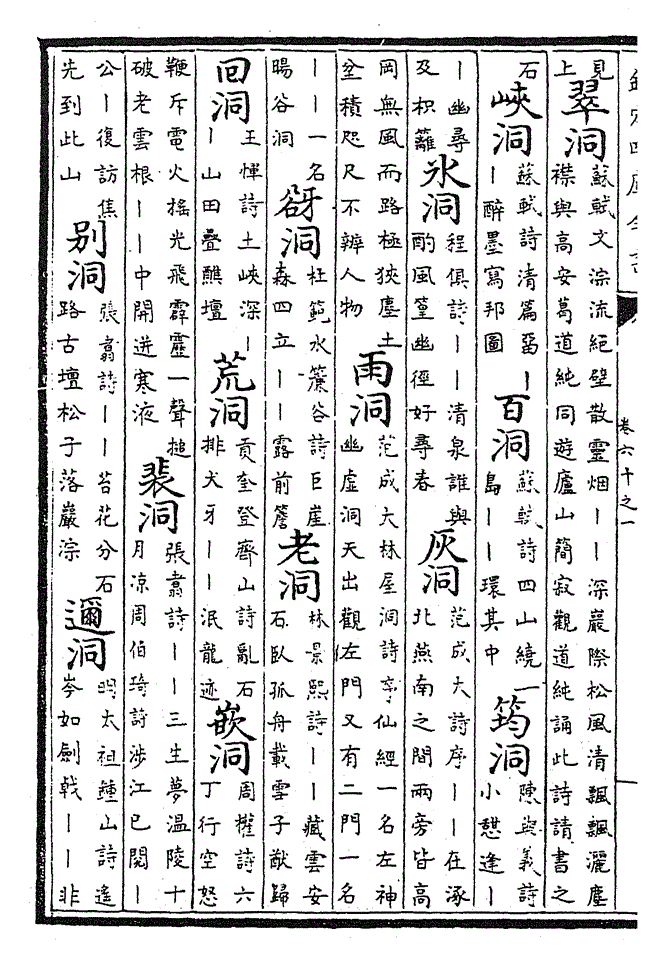 欽定四庫全書
卷六十之一
見上翠洞蘇軾文淙流絕壁散靈烟丨丨深巖際松風清飄飄灑塵襟與高安葛道純同遊廬山簡寂觀道純誦此詩請書之
石峽洞蘇軾詩清篇留丨丨醉墨寫邦圖百洞蘇軾詩四山繞一島丨丨環其中筠洞陳與義詩小憩逢丨
丨幽尋及枳籬氷洞程俱詩丨丨清泉誰與酌風篁幽徑好尋春灰洞范成大詩序丨丨在涿北燕南之間兩旁皆高
岡無風而路極狹塵土坌積咫尺不辨人物雨洞范成大林屋洞詩序仙經一名左神幽虛洞天出觀左門又有二門一名
丨丨一名暘谷洞谺洞杜範水簾谷詩巨崖森四立丨丨露前簷老洞林景熙詩丨丨藏雲安石臥孤舟載雪子猷歸
回洞王惲詩土峽深丨丨山田疊醮壇荒洞貢奎登齊山詩亂石排犬牙丨丨泯龍迹嵌洞周權詩六丁行空怒
鞭斥電火搖光飛霹靂一聲搥破老雲根丨丨中開迸寒液裴洞張翥詩丨丨三生夢温陵十月凉周伯琦詩涉江已閱丨
公丨復訪焦先到此山别洞張翥詩丨丨苔花分石路古壇松子落巖淙邇洞明太祖鍾山詩遙岑如劍戟丨丨非